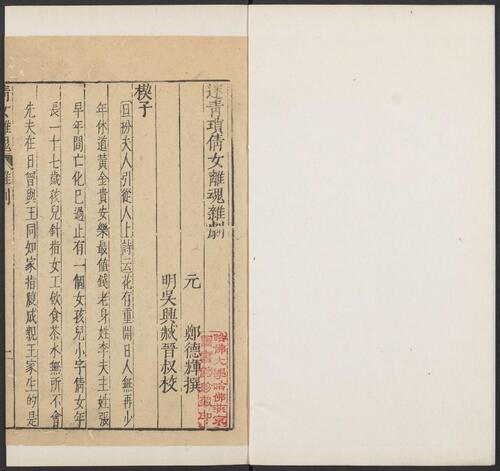 迷青瑣倩女離魂雜劇
元 鄭德輝撰
明吳興臧晉叔校
楔子
旦扮夫人引從人上詩云花有重開日人無再少
年休道黃金貴安樂最值錢老身姓李夫主姓張
早年間亡化已過止有一個女孩兒小字倩女年
長一十七歲孩兒針指女工飲食茶水無所不會
先夫在日曾與王同知家指腹成親王家生的是
倩女離魂 雜劇 一
哈佛大學哈佛燕京
圖書館珍藏印